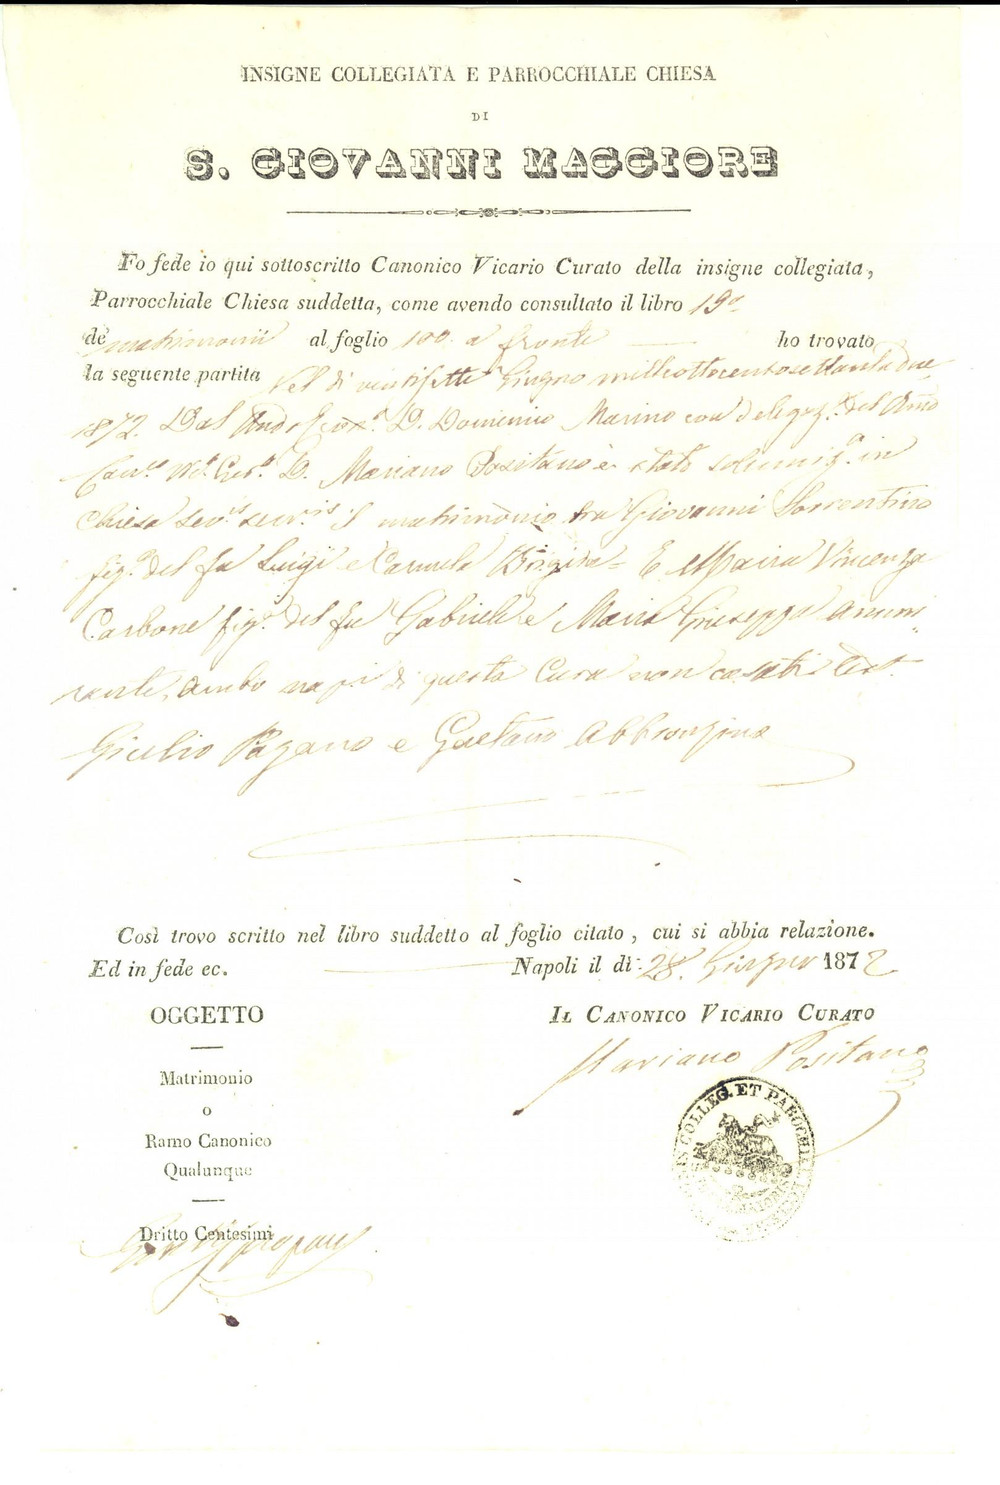 INSIGNE COLLEGIATA E PARROCCHIALE CHIESA
DI
S. GIOVANNI MAGGIORE
Fo fede io qui sottoscritto Canonico Vicario Curato della insigne collegiata,
Parrocchiale Chiesa suddetta, come avendo consultato il libro 19°
de' matrimonii al foglio 100. a fronte ho trovato
la seguente partita Nel dì ventisette Giugno milleottocentosettantadue
1872. Dal D. Domenico Marino con delegaz.e del
D. Mariano Positano è stato solenniz.o in
Chiesa il matrimonio tra Giovanni Sorrentino
fig.o del fu Luigi e Carmela = E Maria Vincenza
Carbone fig.a del fu Gabriele e Maria Giuseppa
ambo nap.i di questa Cura non casati Test.
Giulio Pagano e Gaetano
Così trovo scritto nel libro suddetto al foglio citato, cui si abbia relazione.
Ed in fede ec. Napoli il dì 28. Giugno 1872
OGGETTO
IL CANONICO VICARIO CURATO
Mariano Positano
Matrimonio
o
Ramo Canonico
Qualunque
Dritto Centesimi
COLLEG. ET PAROCHIAL